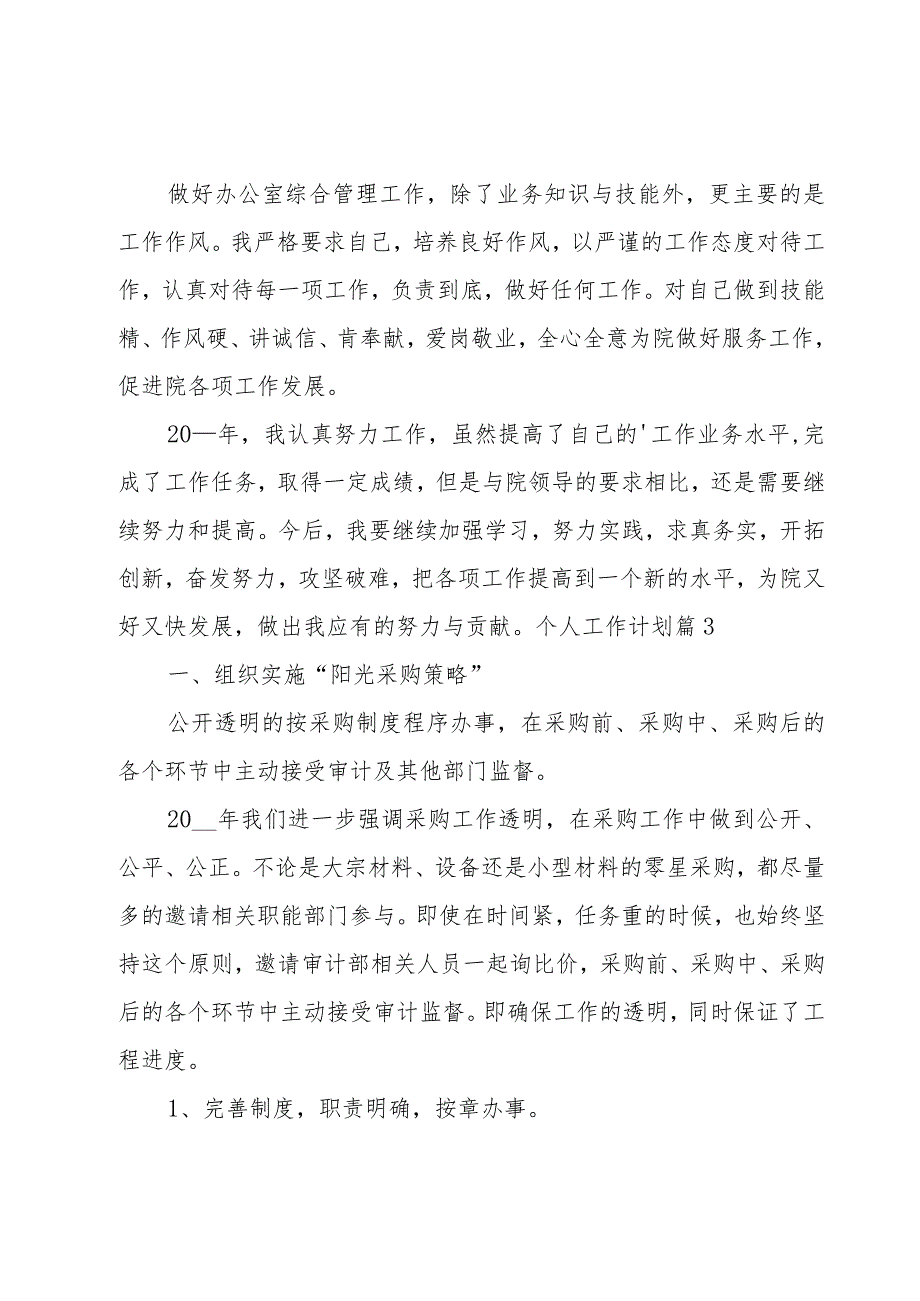 做好办公室综合管理工作，除了业务知识与技能外，更主要的是
工作作风。我严格要求自己，培养良好作风，以严谨的工作态度对待工
作，认真对待每一项工作，负责到底，做好任何工作。对自己做到技能
精、作风硬、讲诚信、肯奉献，爱岗敬业，全心全意为院做好服务工作，
促进院各项工作发展。
20—年，我认真努力工作，虽然提高了自己的'工作业务水平,完
成了工作任务，取得一定成绩，但是与院领导的要求相比，还是需要继
续努力和提高。今后，我要继续加强学习，努力实践，求真务实，开拓
创新，奋发努力，攻坚破难，把各项工作提高到一个新的水平，为院又
好又快发展，做出我应有的努力与贡献。个人工作计划篇 3
一、组织实施“阳光采购策略”
公开透明的按采购制度程序办事，在采购前、采购中、采购后的
各个环节中主动接受审计及其他部门监督。
20__年我们进一步强调采购工作透明，在采购工作中做到公开、
公平、公正。不论是大宗材料、设备还是小型材料的零星采购，都尽量
多的邀请相关职能部门参与。即使在时间紧，任务重的时候，也始终坚
持这个原则，邀请审计部相关人员一起询比价，采购前、采购中、采购
后的各个环节中主动接受审计监督。即确保工作的透明，同时保证了工
程进度。
1、完善制度，职责明确，按章办事。